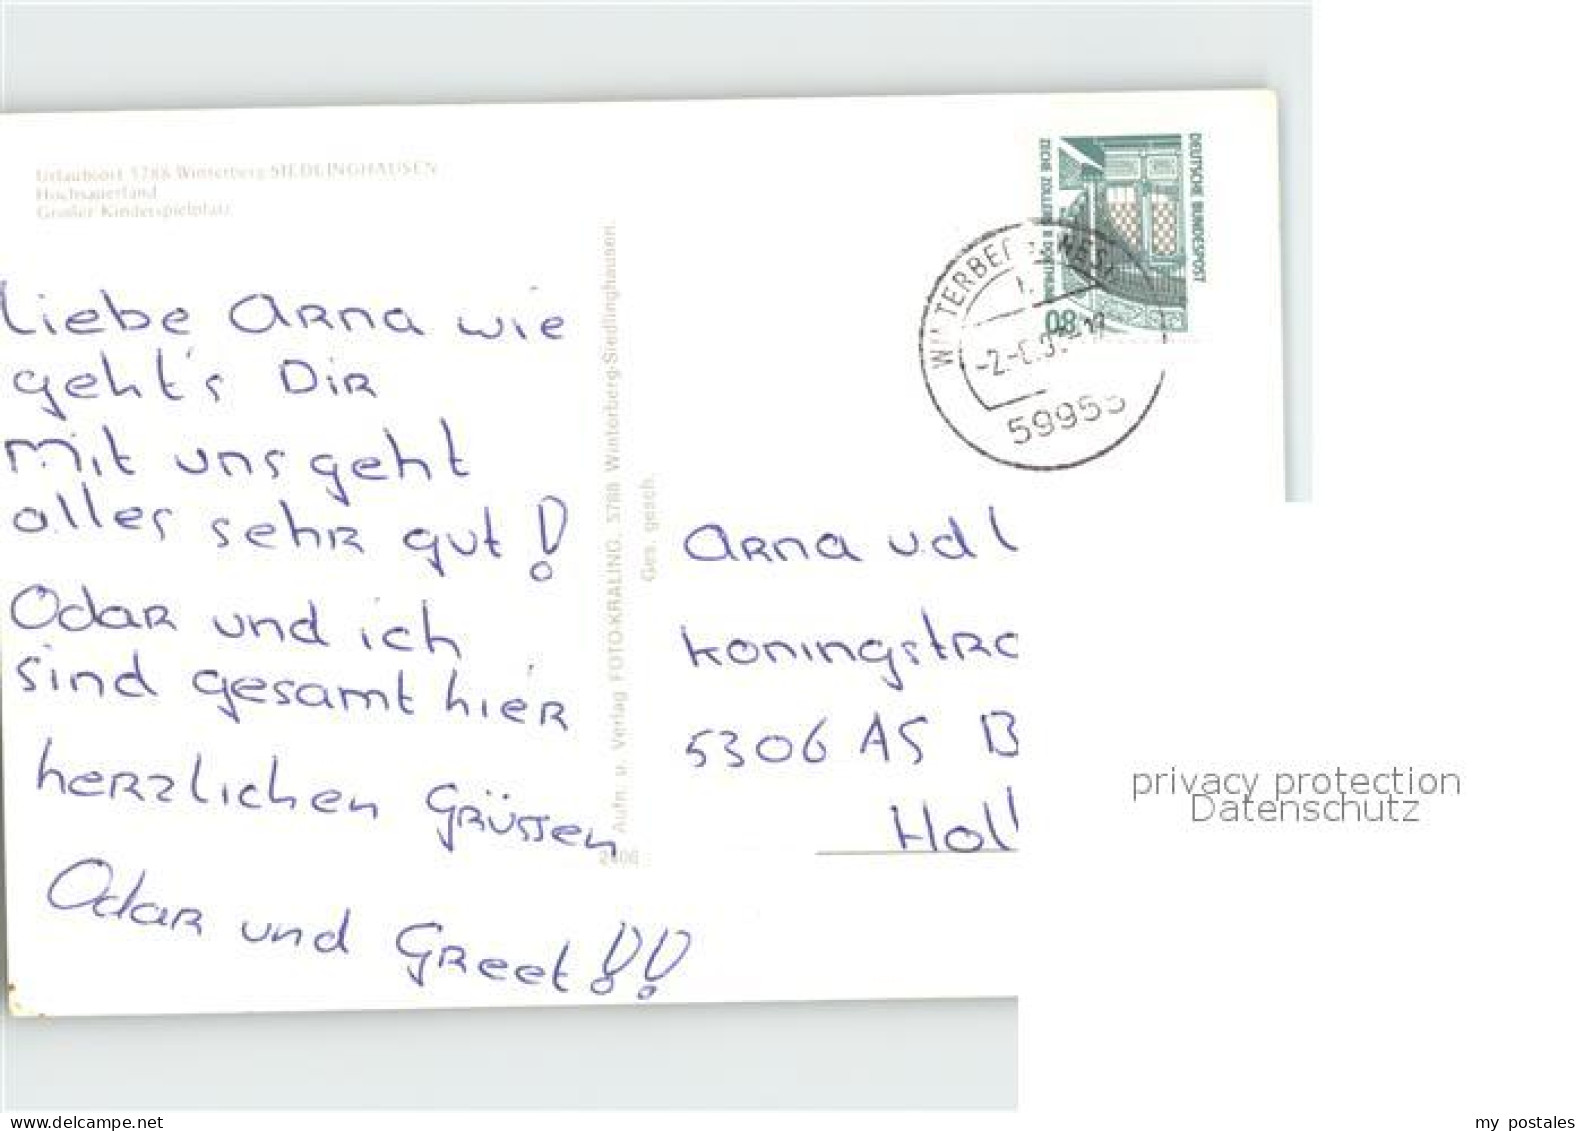 Urlaubsort 5788 Winterberg-SIEDLINGHAUSEN
Hochsauerland
Großer Kinderspielplatz
Liebe Arna wie
geht's Dir
Mit uns geht
alles sehr gut!
Odar und ich
sind gesamt hier
herzlichen Grüssen
Odar und Greet!!
Aufn. u. Verlag FOTO-KRALING, 5788 Winterberg-Siedlinghausen.
Ges. gesch.
2406
DEUTSCHE BUNDESPOST
80
59955
Arna vd
koningstra
5306 AS B
Holl
privacy protection
Datenschutz
my postales